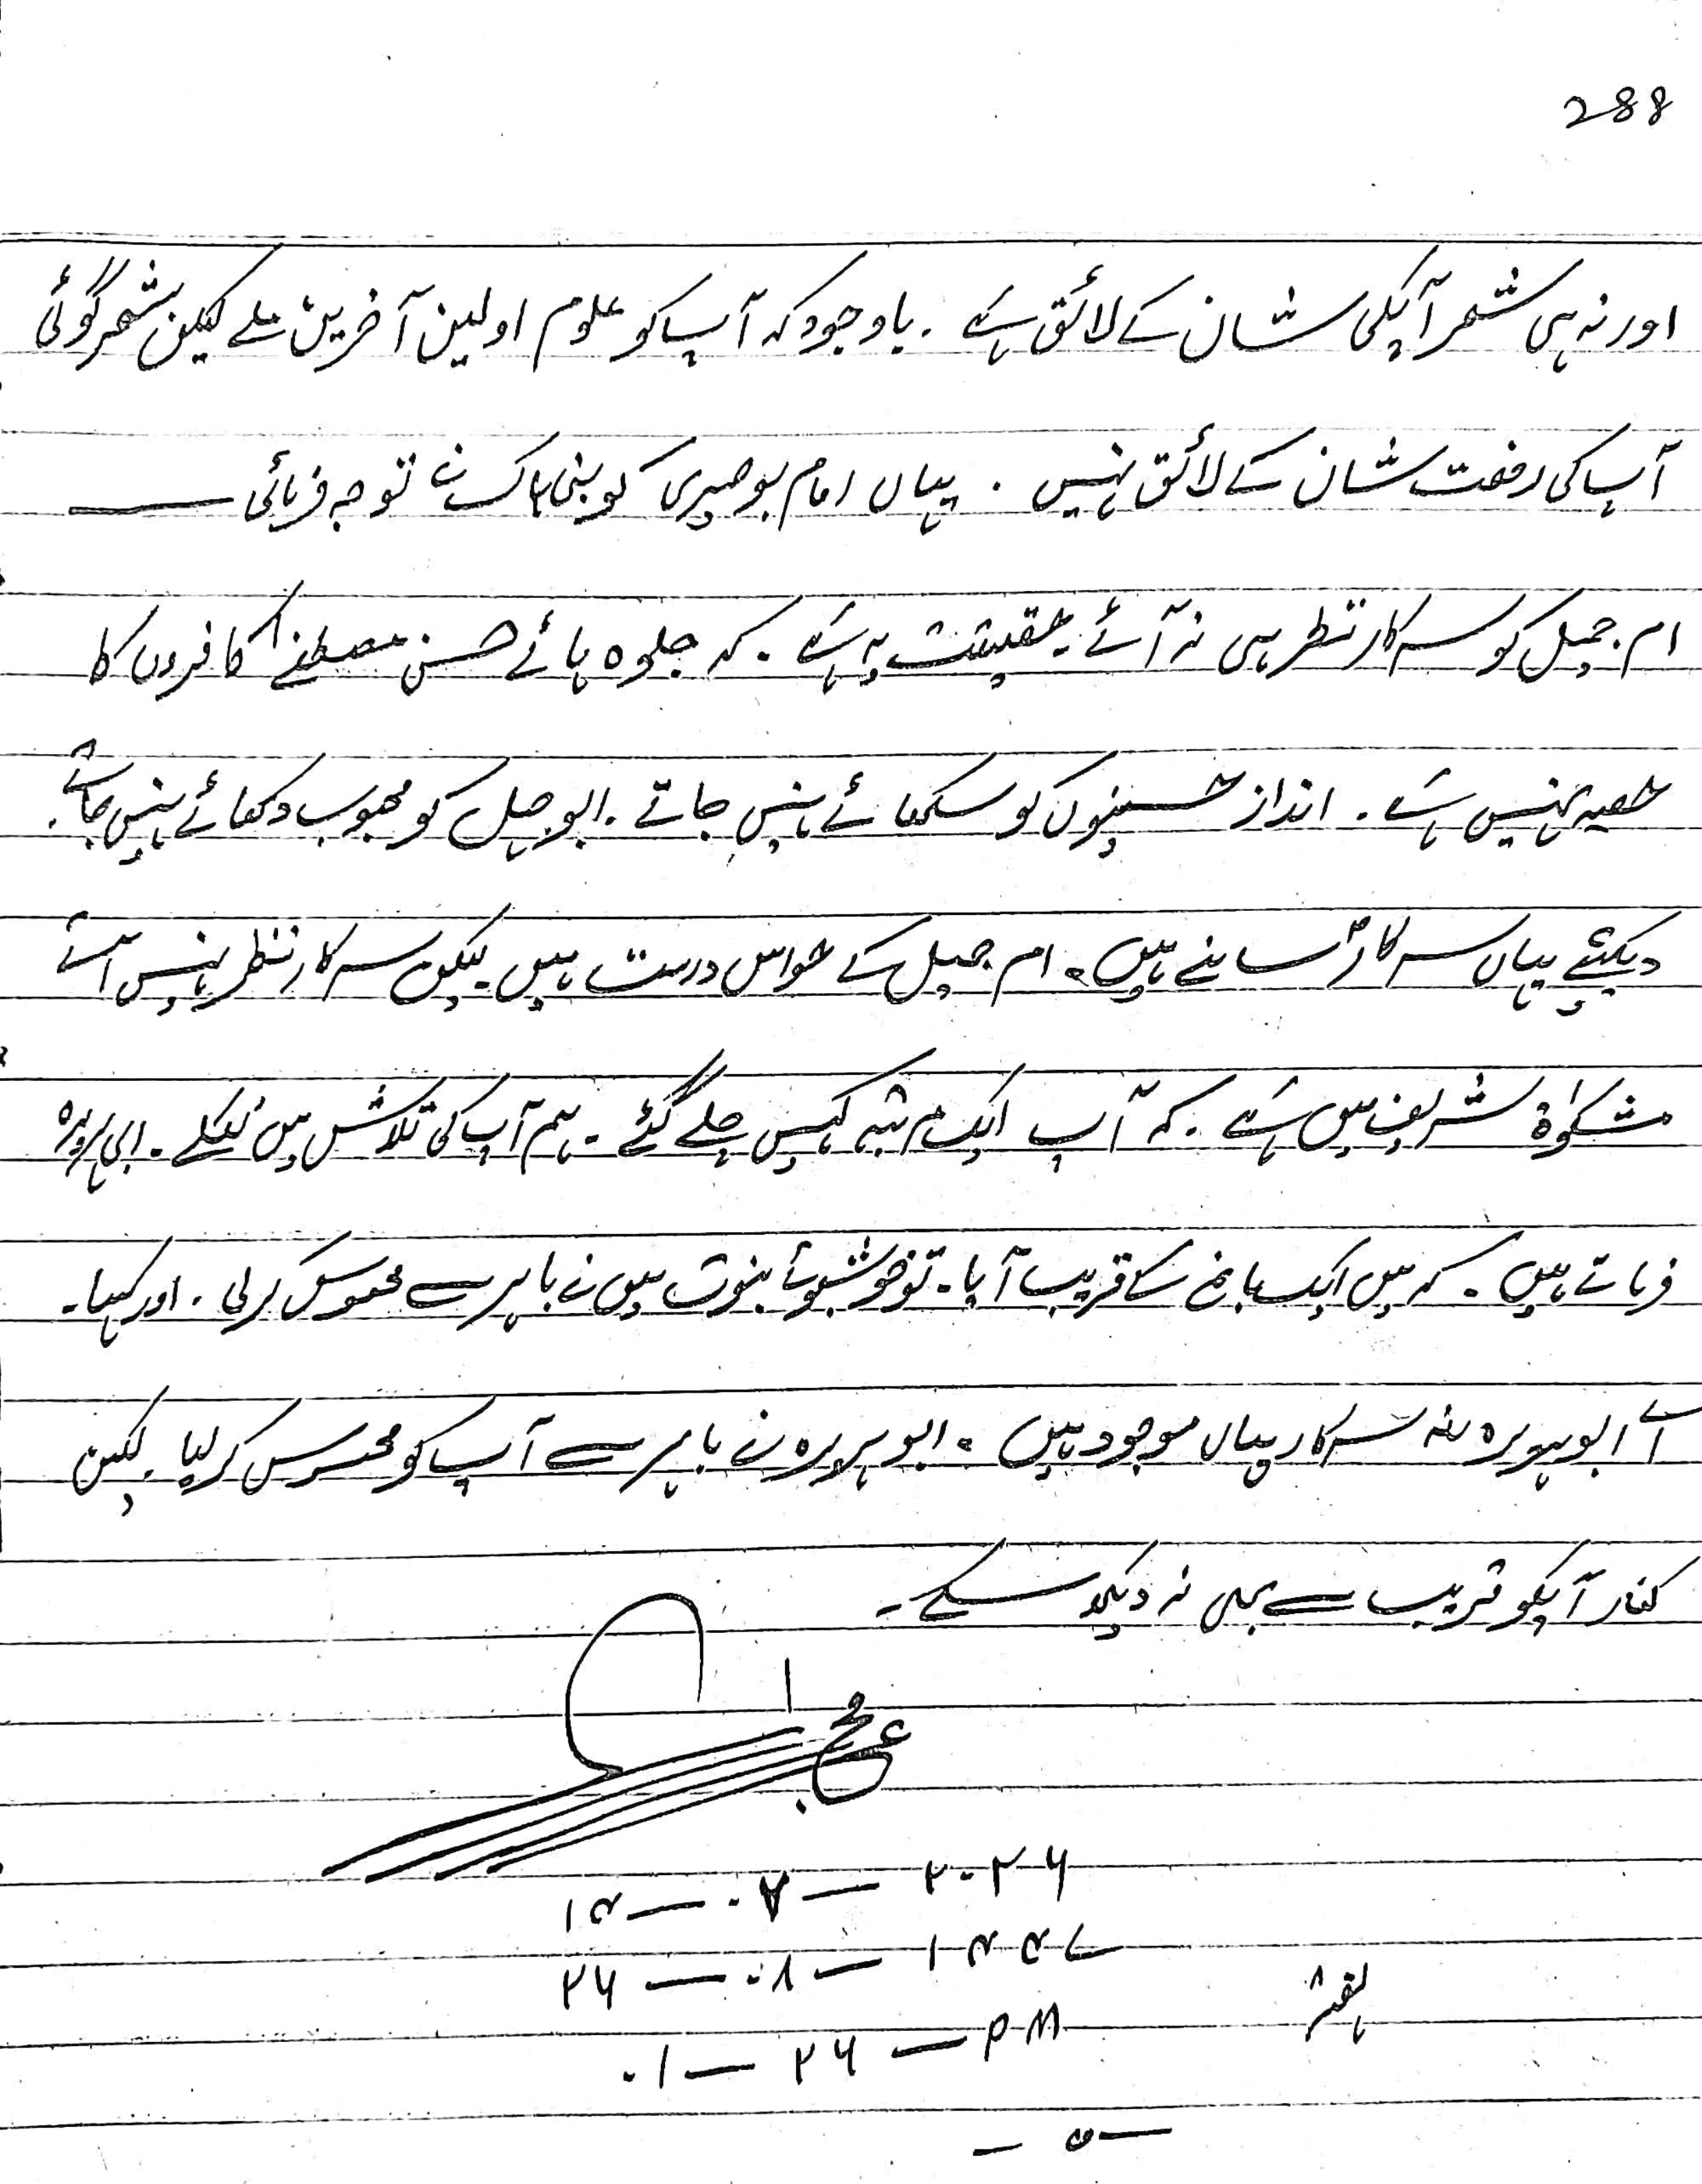 288
اور نہ ہی شعر آپکی شان کے لائق ہے ۔ باوجودکہ آپ کو علوم اولین آخرین ملے لیکن شعر گوئی
آپ کی رفعت شان کے لائق نہیں ۔ یہاں امام بوصیری کو نبی پاک نے توجہ فرمائی ــــ
ام جمیل کو سرکار نظر ہی نہ آئے ۔ حقیقت یہ ہے ۔ کہ جلوہ ہائے حسنِ مصطفےٰ کافروں کا
حصہ نہیں ہے ۔ انداز حسینوں کو سکھائے نہیں جاتے ۔ ابوجہل کو محبوب دکھائے نہیں جاتے ۔
دیکئیے یہاں سرکارؐ سامنے ہیں ۔ ام جمیل کے حواس درست ہیں ۔ لیکن سرکار نظر نہیں آئے
مشکوٰۃ شریف میں ہے ۔ کہ آپ ایک مرتبہ کہیں چلے گئے ۔ ہم آپ کی تلاش میں نکلے ۔ ابی ہریرہ
فرماتے ہیں ۔ کہ میں ایک باغ کے قریب آیا ۔ تو خوشبوئے نبوت میں نے باہر سے محسوس کر لی ۔ اور کہا ۔
اے ابو ہریرہ سرکار یہاں موجود ہیں ۔ ابو ہریرہ نے باہر سے آپ کو محسوس کر لیا ۔ لیکن
کفار آپکو قریب سے بھی نہ دیکھ سکے ۔
۱۵ — ۰۸ — ۲۰۲۶
۲۶ — ۰۱ — ۱۵۵۷
ہفتہ
۰۱ — ۲۶ — PM